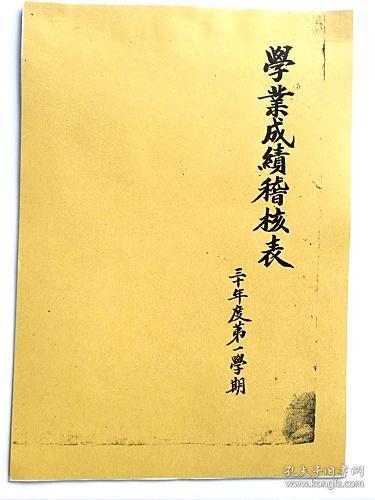 學業成績稽核表
三十年度第一學期
孔夫子旧书网
www.kongfz.com